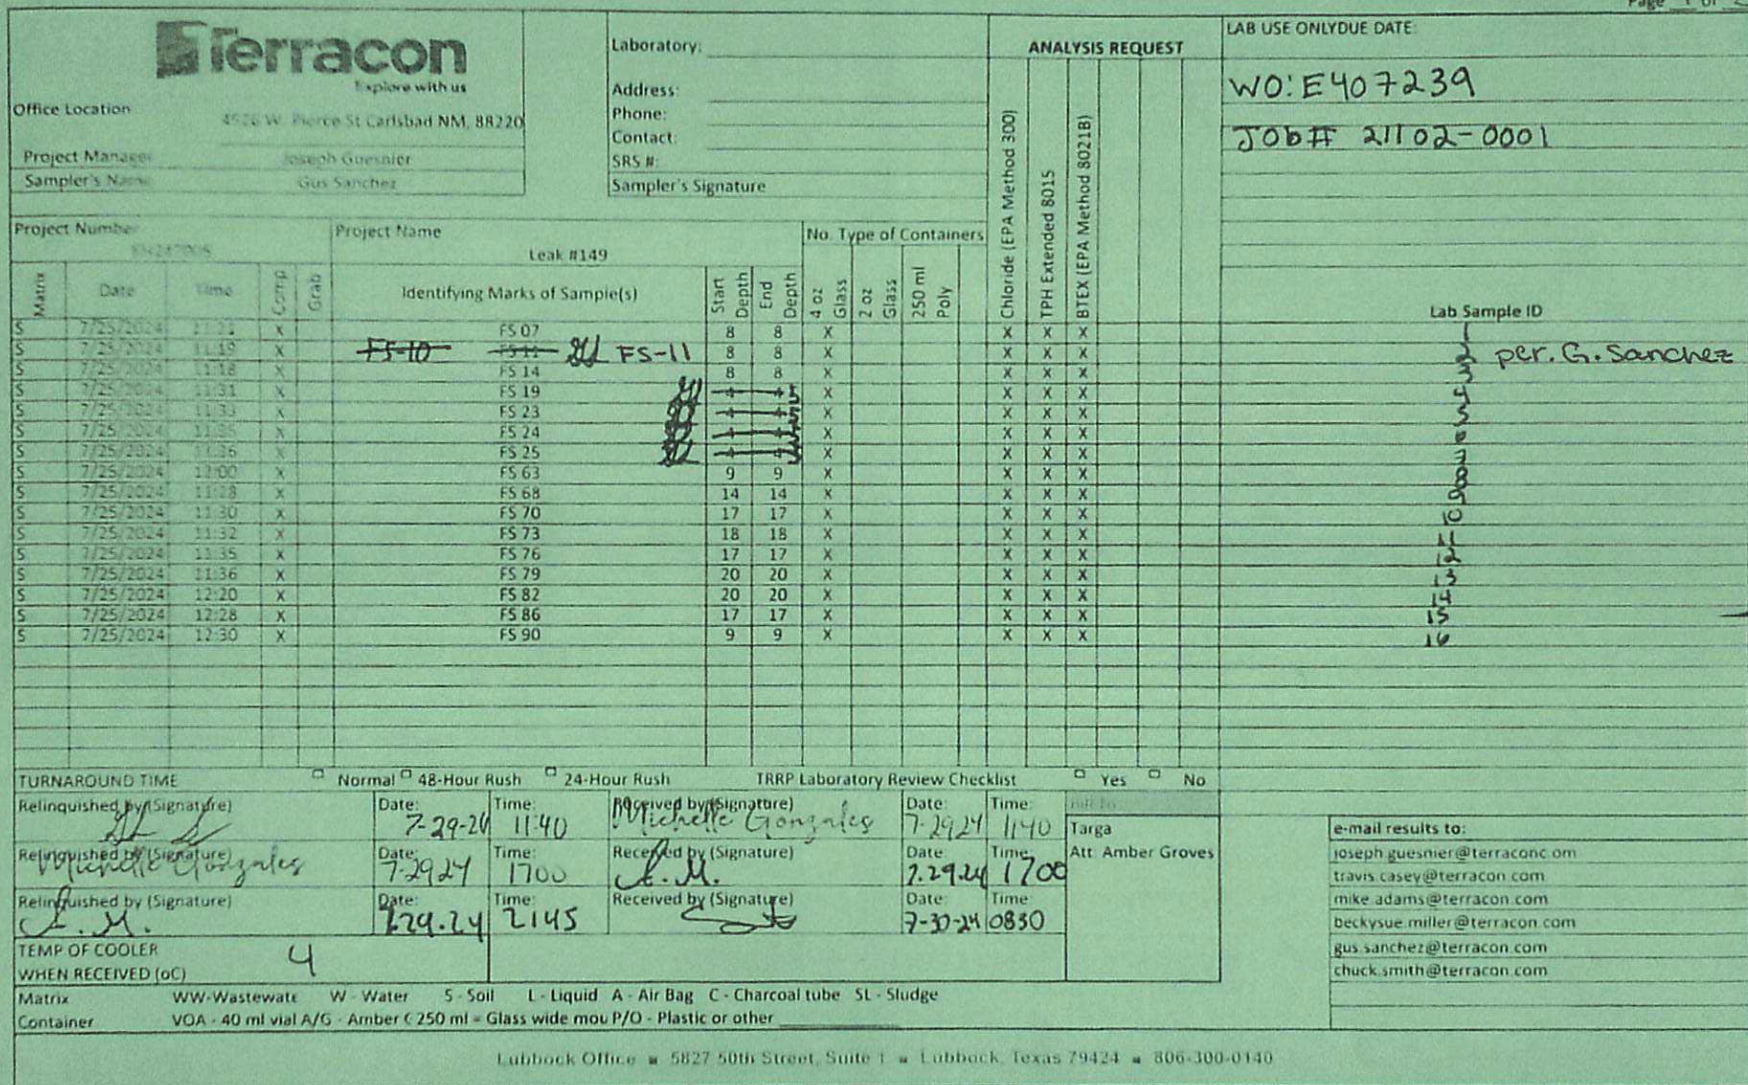 Page 1 of 2
Terracon
Explore with us
Office Location
4526 W. Pierce St Carlsbad NM, 88220
Project Manager Joseph Guesnier
Sampler's Name Gus Sanchez
Laboratory:
Address:
Phone:
Contact:
SRS #:
Sampler's Signature
ANALYSIS REQUEST
LAB USE ONLYDUE DATE:
WO: E407239
JOb# 21102-0001
Project Number
Project Name
Leak #149
No. Type of Containers
Matrix Date Time Comp Grab Identifying Marks of Sample(s) Start Depth End Depth 4 oz Glass 2 oz Glass 250 ml Poly Chloride (EPA Method 300) TPH Extended 8015 BTEX (EPA Method 8021B) Lab Sample ID
S 7/25/2024 11:21 X FS 07 8 8 X X X X 1
S 7/25/2024 11:19 X FS-10 FS 11 FS-11 8 8 X X X X 2 per. G. Sanchez
S 7/25/2024 11:18 X FS 14 8 8 X X X X 3
S 7/25/2024 11:31 X FS 19 4 4 5 X X X X 4
S 7/25/2024 11:33 X FS 23 4 4 5 X X X X 5
S 7/25/2024 11:35 X FS 24 4 4 5 X X X X 6
S 7/25/2024 11:36 X FS 25 4 4 5 X X X X 7
S 7/25/2024 12:00 X FS 63 9 9 X X X X 8
S 7/25/2024 11:28 X FS 68 14 14 X X X X 9
S 7/25/2024 11:30 X FS 70 17 17 X X X X 10
S 7/25/2024 11:32 X FS 73 18 18 X X X X 11
S 7/25/2024 11:35 X FS 76 17 17 X X X X 12
S 7/25/2024 11:36 X FS 79 20 20 X X X X 13
S 7/25/2024 12:20 X FS 82 20 20 X X X X 14
S 7/25/2024 12:28 X FS 86 17 17 X X X X 15
S 7/25/2024 12:30 X FS 90 9 9 X X X X 16
TURNAROUND TIME Normal 48-Hour Rush 24-Hour Rush TRRP Laboratory Review Checklist Yes No
Relinquished by (Signature) Date: 7-29-24 Time: 1140 Received by (Signature) Michelle Gonzales Date: 7-29-24 Time: 1140
Bill to:
Targa
Att: Amber Groves
Relinquished by (Signature) Michelle Gonzales Date: 7-29-24 Time: 1700 Received by (Signature) A.M. Date: 7.29.24 Time: 1700
Relinquished by (Signature) A.M. Date: 7.29.24 Time: 2145 Received by (Signature) Date: 7-30-24 Time 0830
TEMP OF COOLER
WHEN RECEIVED (oC) 4
e-mail results to:
joseph.guesnier@terraconc om
travis.casey@terracon.com
mike.adams@terracon.com
beckysue.miller@terracon.com
gus.sanchez@terracon.com
chuck.smith@terracon.com
Matrix WW-Wastewate W - Water S - Soil L - Liquid A - Air Bag C - Charcoal tube SL - Sludge
Container VOA - 40 ml vial A/G - Amber ( 250 ml = Glass wide mou P/O - Plastic or other
Lubbock Office ■ 5827 50th Street, Suite 1 ■ Lubbock, Texas 79424 ■ 806-300-0140